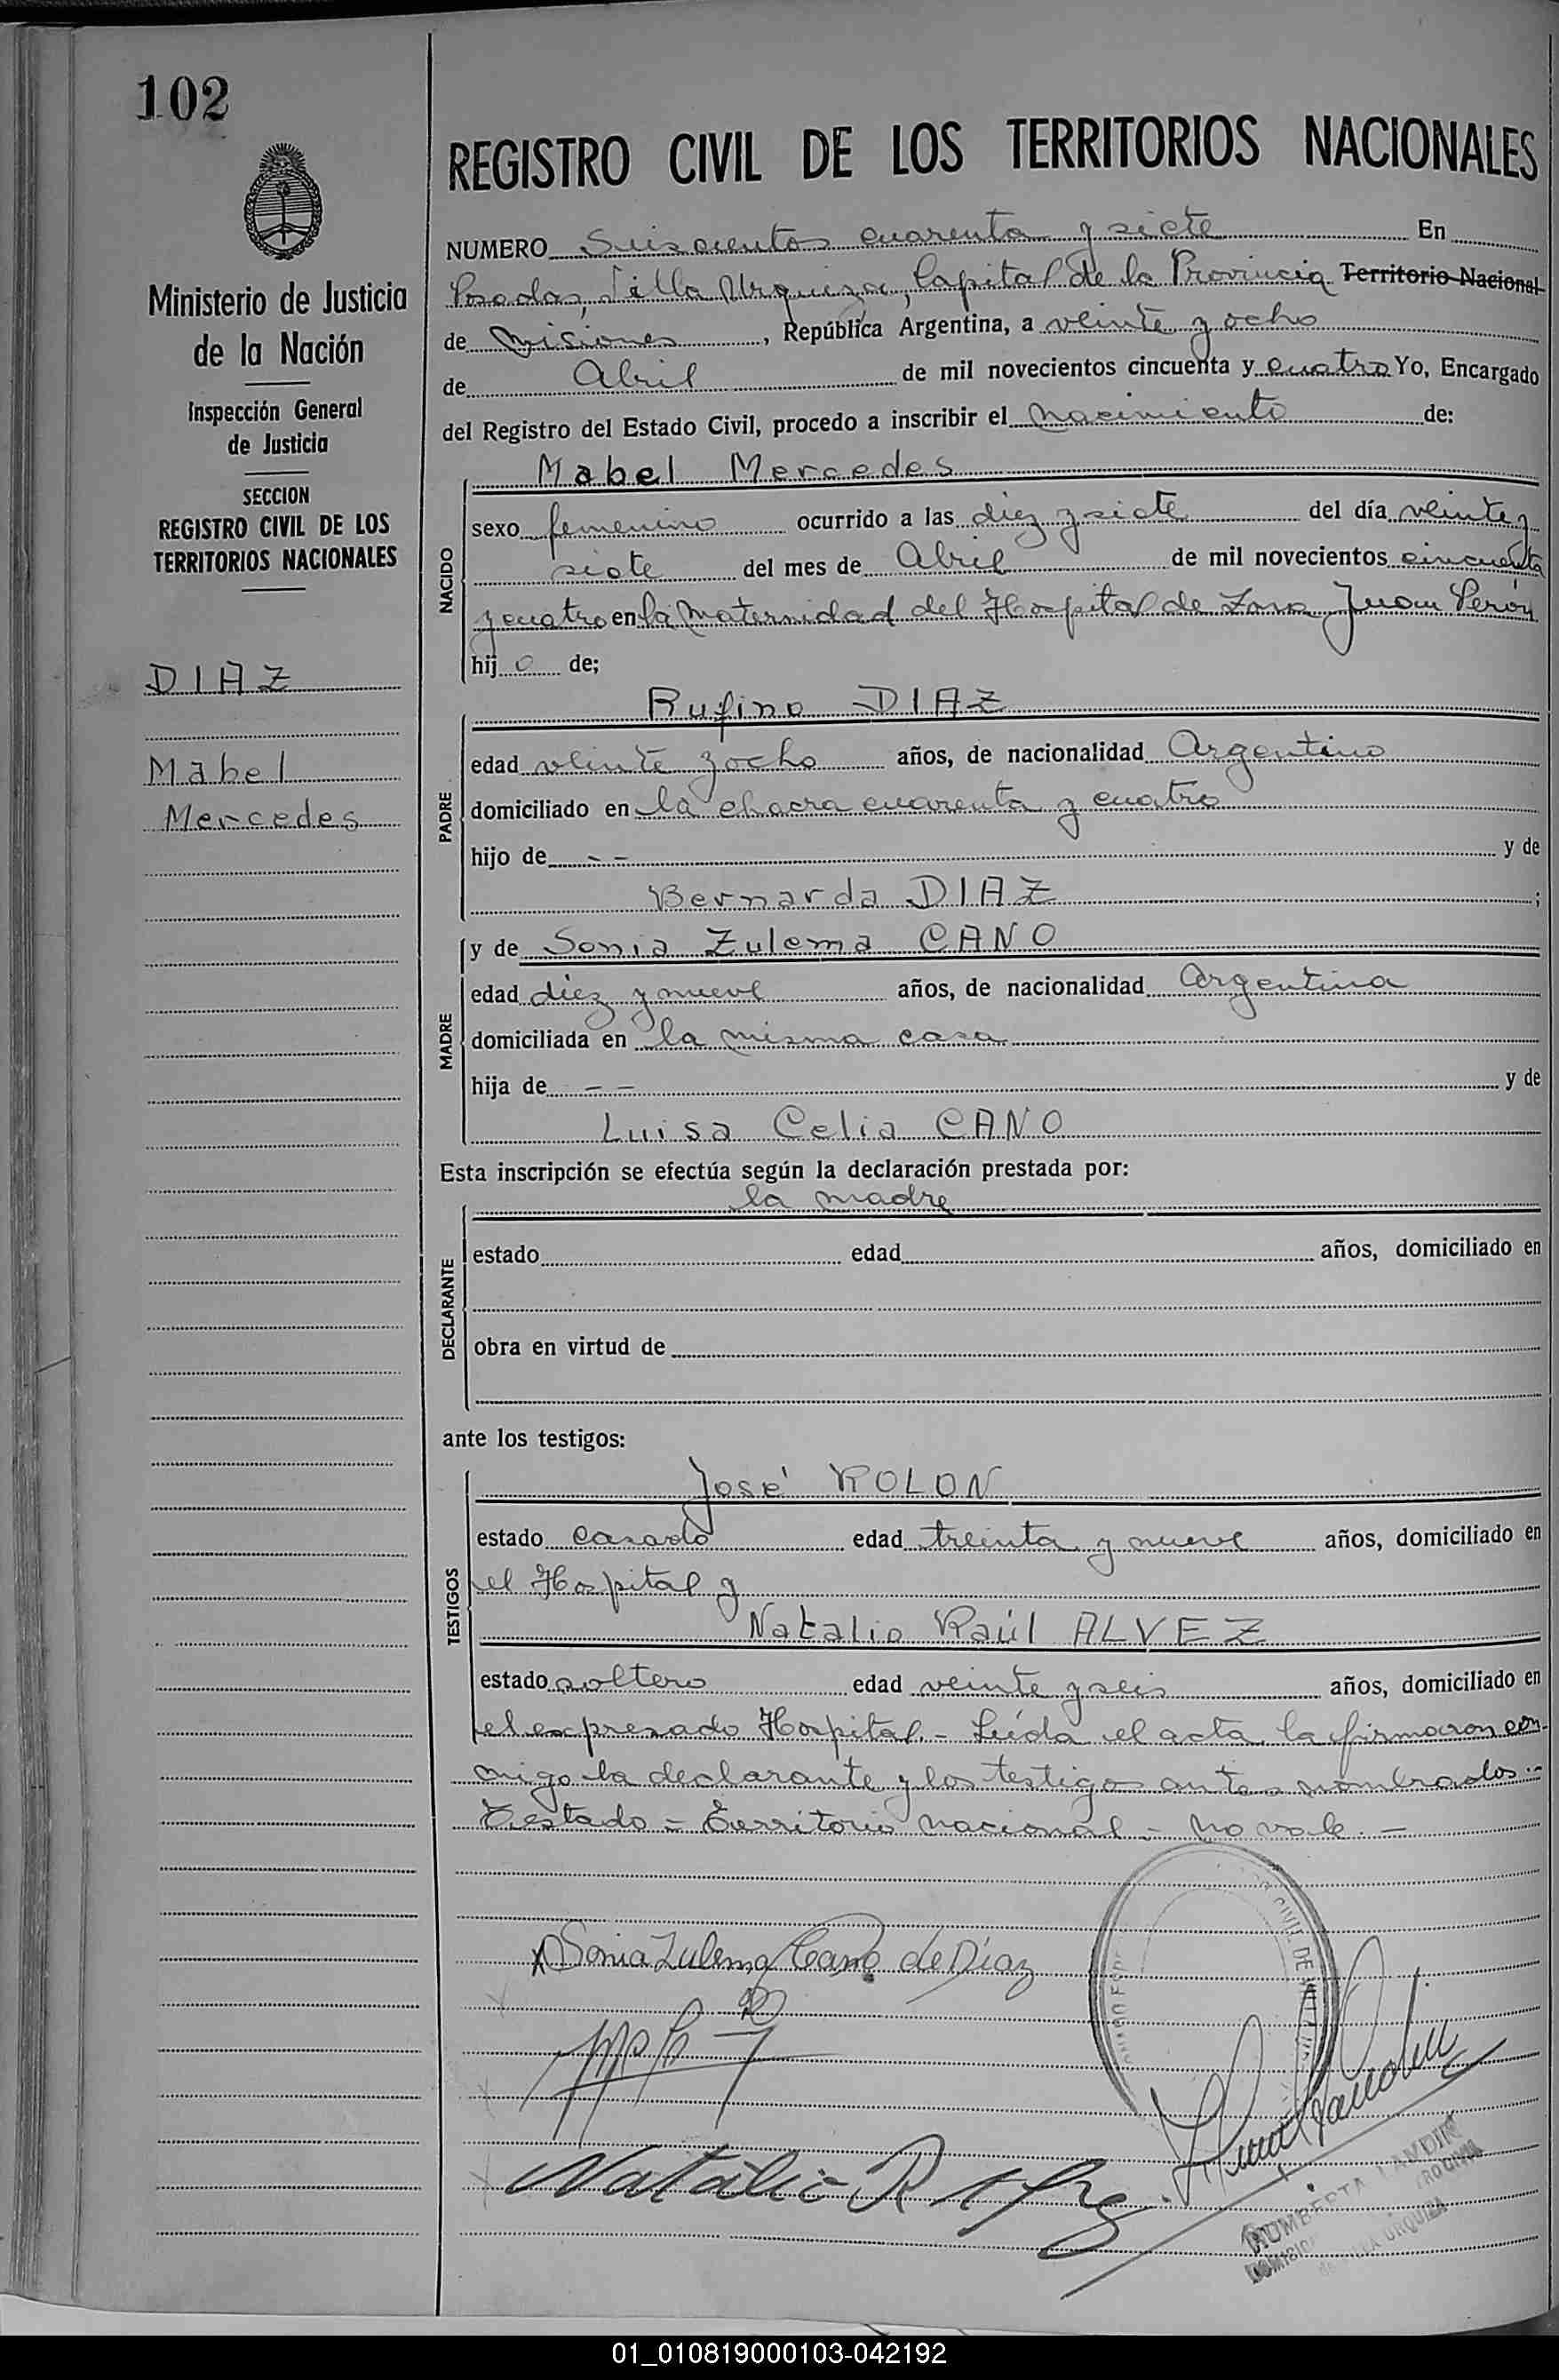 102
Ministerio de Justicia
de la Nación
Inspección General
de Justicia
SECCION
REGISTRO CIVIL DE LOS
TERRITORIOS NACIONALES
DIAZ
Mabel
Mercedes
REGISTRO CIVIL DE LOS TERRITORIOS NACIONALES
NUMERO Seiscientos cuarenta y siete En
Posadas, Villa Urquiza, Capital de la Provincia Territorio Nacional
de Misiones, República Argentina, a veinte y ocho
de Abril de mil novecientos cincuenta y cuatro Yo, Encargado
del Registro del Estado Civil, procedo a inscribir el nacimiento de:
NACIDO
Mabel Mercedes
sexo femenino ocurrido a las diez y siete del día veinte y
siete del mes de Abril de mil novecientos cincuenta
y cuatro en la Maternidad del Hospital de Zona Juan Perón
hij a de;
PADRE
Rufino DIAZ
edad veinte y ocho años, de nacionalidad Argentino
domiciliado en la chacra cuarenta y cuatro
hijo de - - y de
Bernarda DIAZ ;
MADRE
y de Sonia Zulema CANO
edad diez y nueve años, de nacionalidad Argentina
domiciliada en la misma casa
hija de - - y de
Luisa Celia CANO
Esta inscripción se efectúa según la declaración prestada por:
DECLARANTE
la madre
estado edad años, domiciliado en
obra en virtud de
ante los testigos:
TESTIGOS
José ROLON
estado casado edad treinta y nueve años, domiciliado en
el Hospital y
Natalio Raúl ALVEZ
estado soltero edad veinte y seis años, domiciliado en
el expresado Hospital.- Leída el acta la firmaron con-
migo la declarante y los testigos antes nombrados.-
Testado = Territorio nacional - No vale.-
Sonia Zulema Cano de Díaz
Natalio R
CIVIL DE
HUMBERTA LANDIN
URQUIZA
01_010819000103-042192